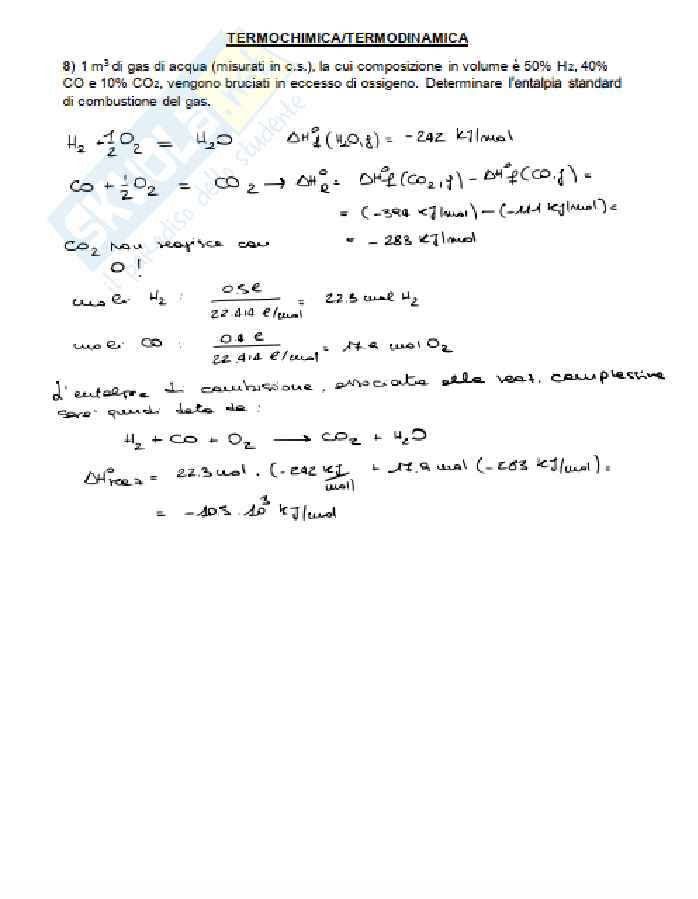 TERMOCHIMICA/TERMODINAMICA
8) 1 m³ di gas di acqua (misurati in c.s.), la cui composizione in volume è 50% H₂, 40%
CO e 10% CO₂, vengono bruciati in eccesso di ossigeno. Determinare l'entalpia standard
di combustione del gas.
H₂ + 1/2 O₂ = H₂O ΔH°f (H₂O, g) = -242 KJ/mol
CO + 1/2 O₂ = CO₂ → ΔH°R = ΔH°f (CO₂, g) - ΔH°f (CO, g) =
= (-394 KJ/mol) - (-111 KJ/mol) =
CO₂ non reagisce con = - 283 KJ/mol
O!
moli H₂ : 0.5 ℓ / 22.414 ℓ/mol = 22.3 mol H₂
moli CO : 0.4 ℓ / 22.414 ℓ/mol = 17.8 mol O₂
L'entalpia di combustione, associata alla reaz. complessiva
sarà quindi data da :
H₂ + CO + O₂ → CO₂ + H₂O
= 22.3 mol · (-242 KJ/mol) + 17.8 mol (-283 KJ/mol) =
= -10³ KJ/mol
SKUOLA.net
il paradiso dello studente